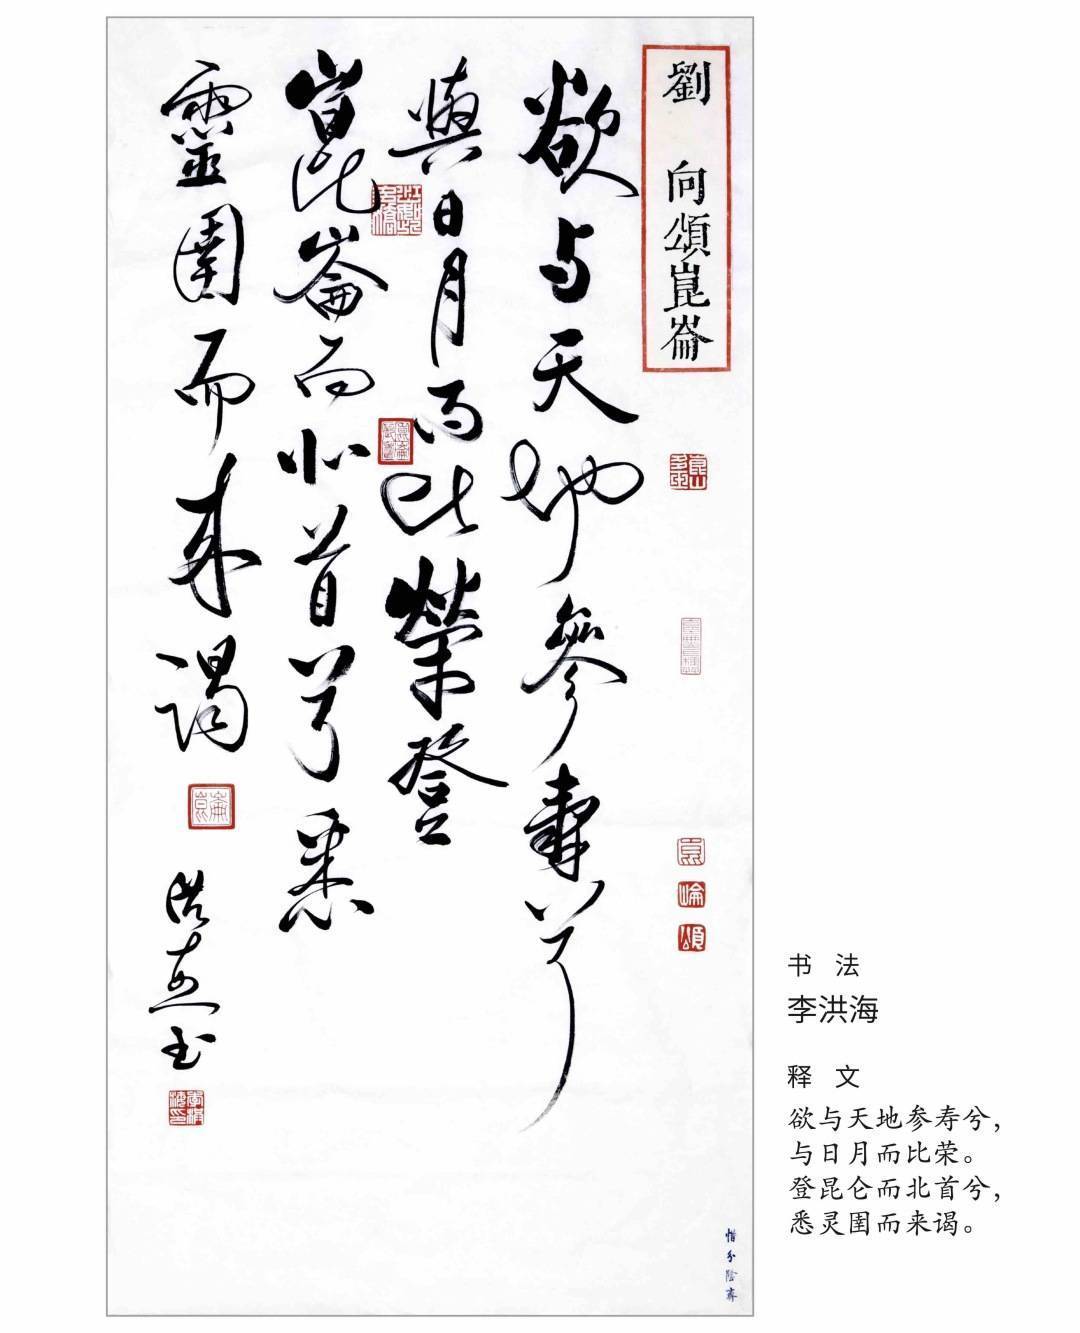 劉向頌崑崙
欲与天地參壽兮
與日月而比榮登
崑崙而北首兮悉
靈圉而来谒
洪海书
昆山
崑
崙
頌
崑崙
惜分陰齋
书 法
李洪海
释 文
欲与天地参寿兮，
与日月而比荣。
登昆仑而北首兮，
悉灵圉而来谒。